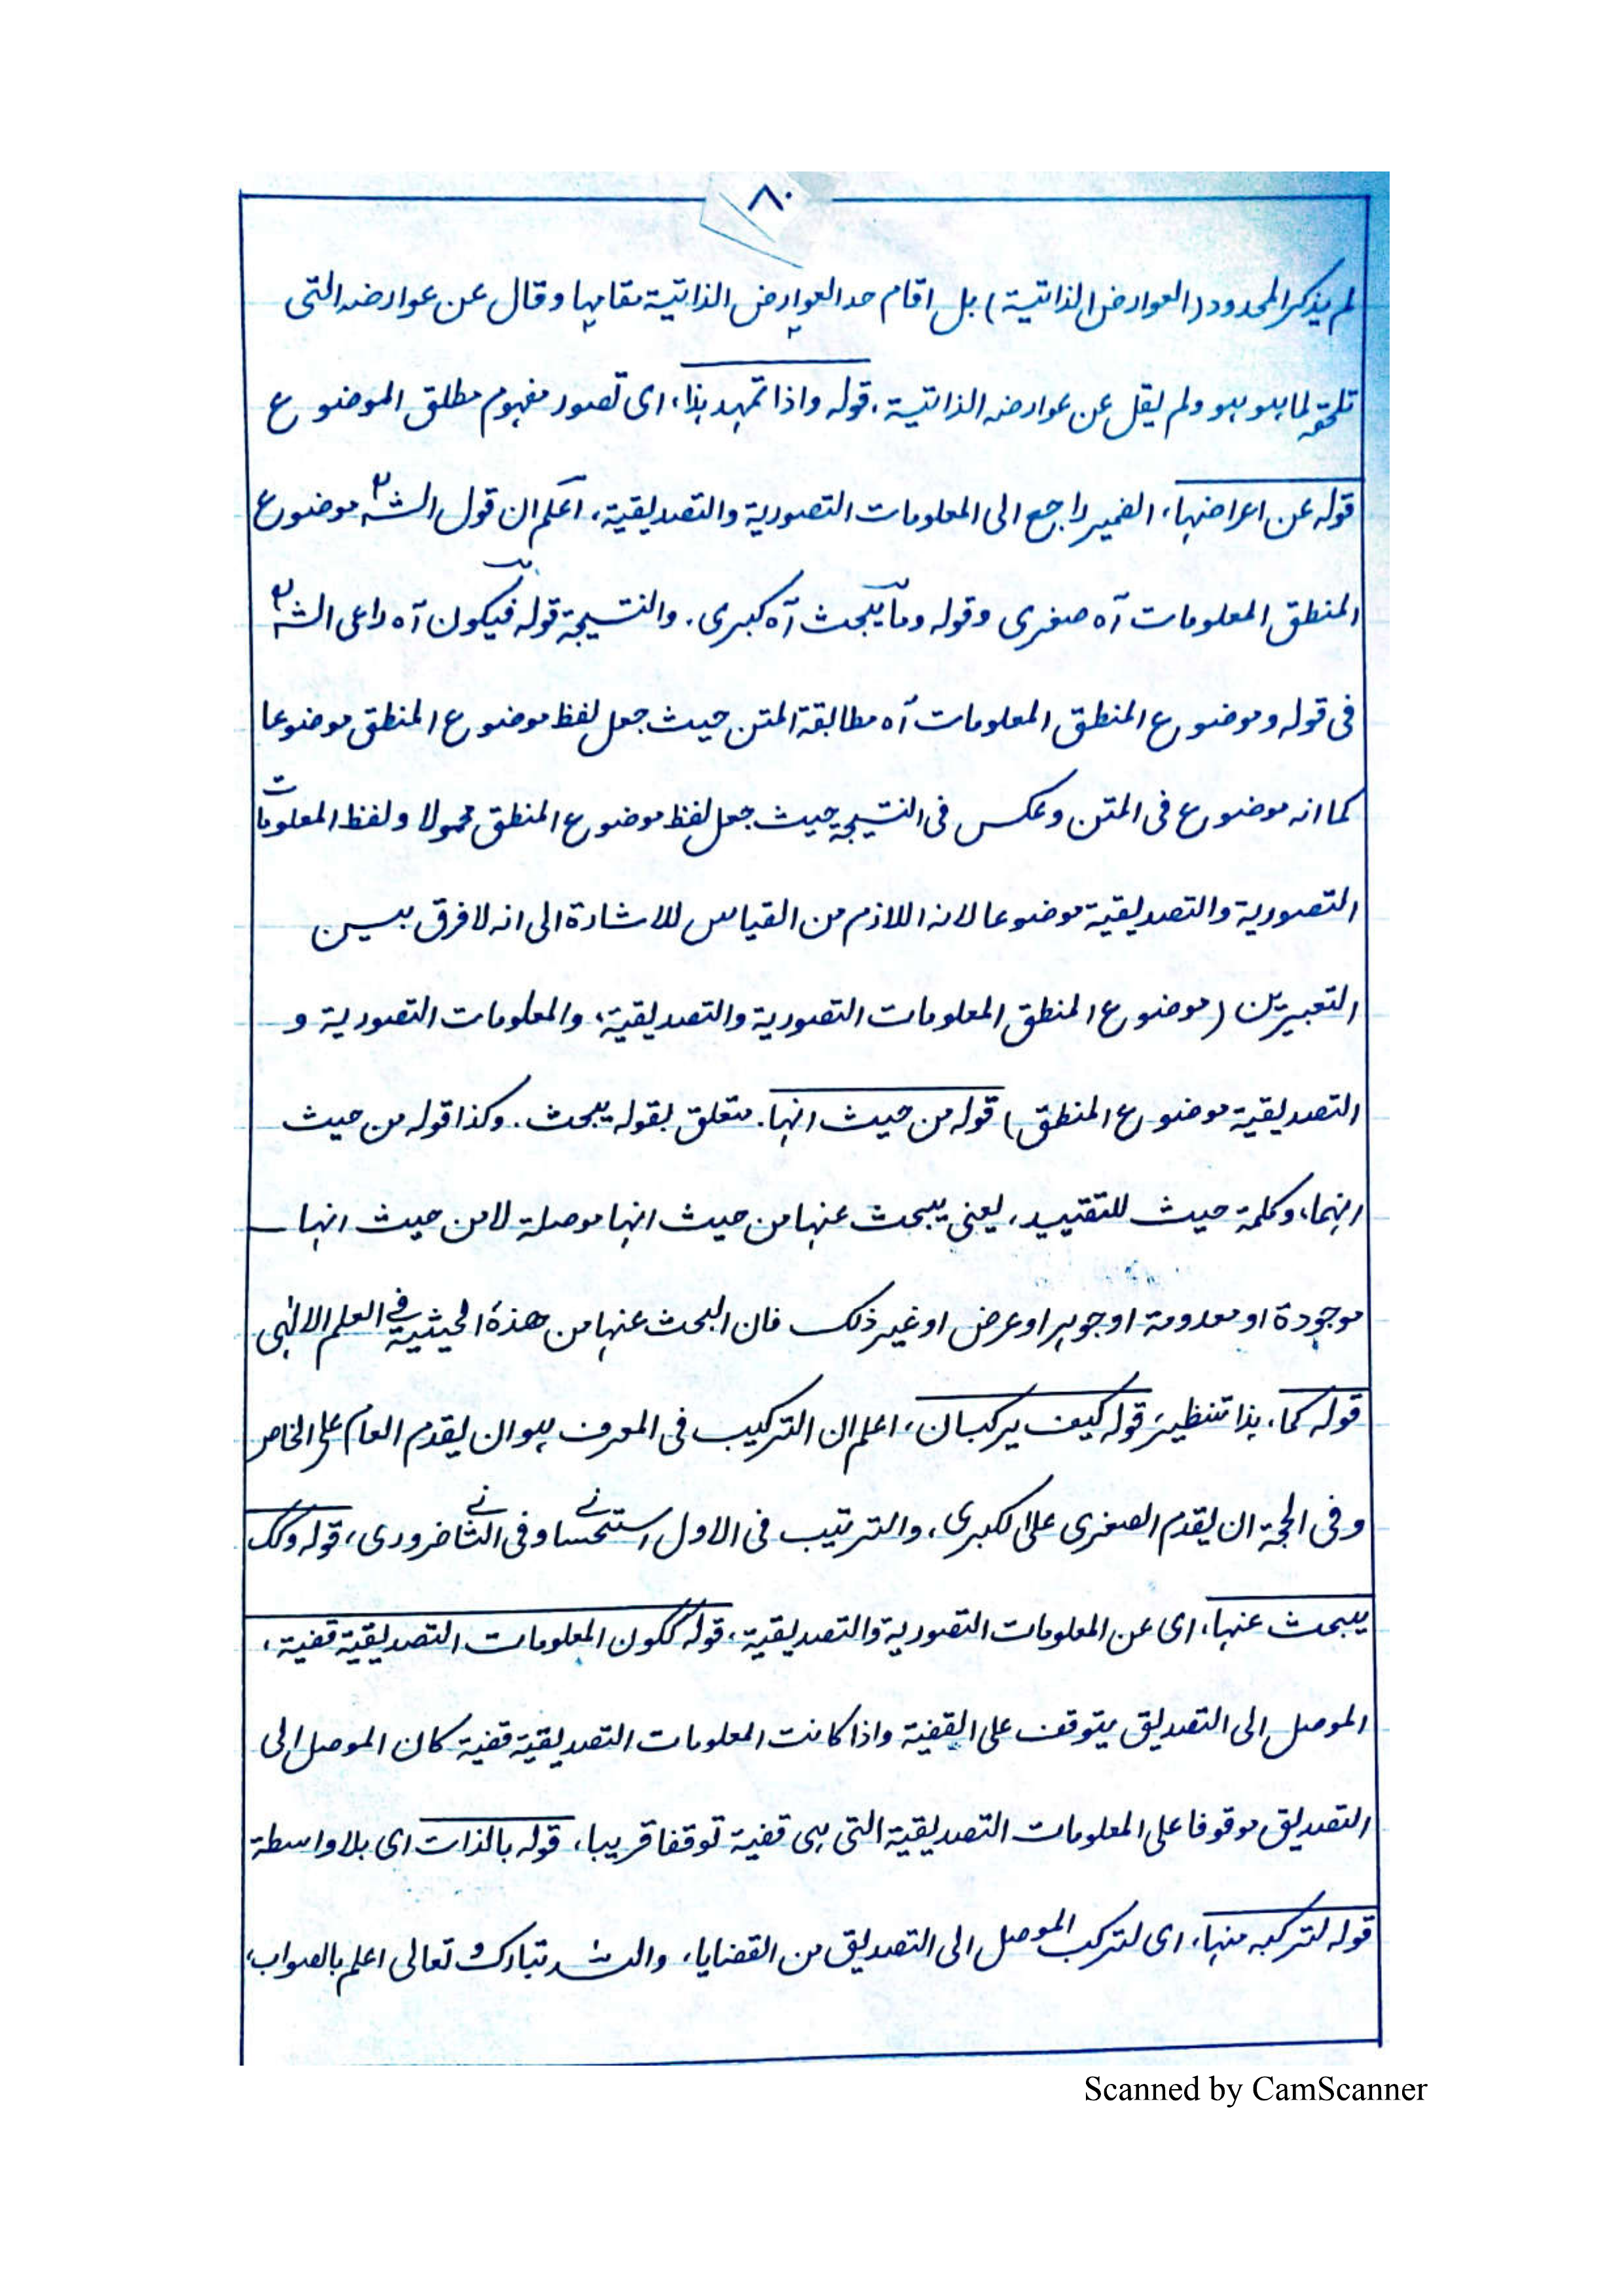 ٨٠
لم يذكر المحدود (العوارض الذاتية) بل اقام حد العوارض الذاتية مقامها وقال عن عوارضه التى
تلحقه لما هو هو ولم يقل عن عوارضه الذاتية، قوله واذا تمهد هذا، اى تصور مفهوم مطلق الموضوع
قوله عن اعراضها، الضمير راجع الى المعلومات التصورية والتصديقية، اعلم ان قول الشه موضوع
المنطق المعلومات آه صغرى وقوله وما يبحث آه كبرى. والنتيجة قوله فيكون آه راعى الشه
فى قوله وموضوع المنطق المعلومات آه مطابقة المتن حيث جعل لفظ موضوع المنطق موضوعا
كما انه موضوع فى المتن وعكس فى النتيجة حيث جعل لفظ موضوع المنطق محمولا ولفظ المعلومات
التصورية والتصديقية موضوعا لانه اللازم من القياس للاشارة الى انه لا فرق بين
التعبيرين (موضوع المنطق المعلومات التصورية والتصديقية، والمعلومات التصورية و
التصديقية موضوع المنطق) قوله من حيث انها. متعلق بقوله يبحث. وكذا قوله من حيث
انهما، وكلمة حيث للتقييد، يعنى يبحث عنها من حيث انها موصلة لا من حيث انها
موجودة او معدومة او جوهر او عرض او غير ذلك فان البحث عنها من هذه الحيثية فى العلم الالهى
قوله كما، هذا تنظير، قوله كيف يركبان، اعلم ان التركيب فى المعرف هو ان يقدم العام على الخاص
وفى الحجة ان يقدم الصغرى على الكبرى، والترتيب فى الاول استحسانى وفى الثانى ضرورى، قوله وكك
يبحث عنها، اى عن المعلومات التصورية والتصديقية، قوله ككون المعلومات التصديقية قضية،
الموصل الى التصديق يتوقف على القضية واذا كانت المعلومات التصديقية قضية كان الموصل الى
التصديق موقوفا على المعلومات التصديقية التى هى قضية توقفا قريبا، قوله بالذات اى بلا واسطة
قوله لتركبه منها، اى لتركب الموصل الى التصديق من القضايا، والله تبارك و تعالى اعلم بالصواب،
Scanned by CamScanner